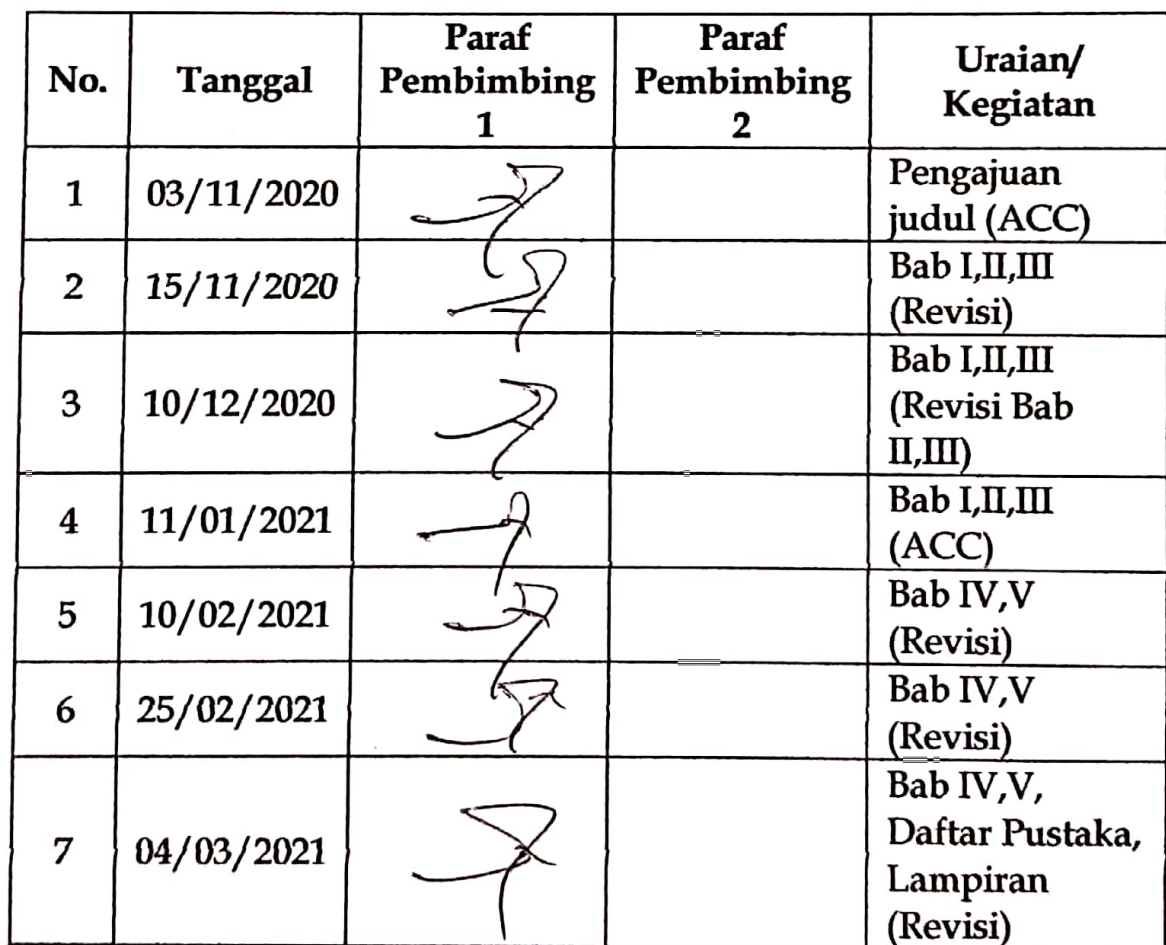 No.
Tanggal
Paraf
Pembimbing
1
Paraf
Pembimbing
2
Uraian/
Kegiatan
1
03/11/2020
Pengajuan
judul (ACC)
2
15/11/2020
Bab I,II,III
(Revisi)
3
10/12/2020
Bab I,II,III
(Revisi Bab
II,III)
4
11/01/2021
Bab I,II,III
(ACC)
5
10/02/2021
Bab IV,V
(Revisi)
6
25/02/2021
Bab IV,V
(Revisi)
7
04/03/2021
Bab IV,V,
Daftar Pustaka,
Lampiran
(Revisi)